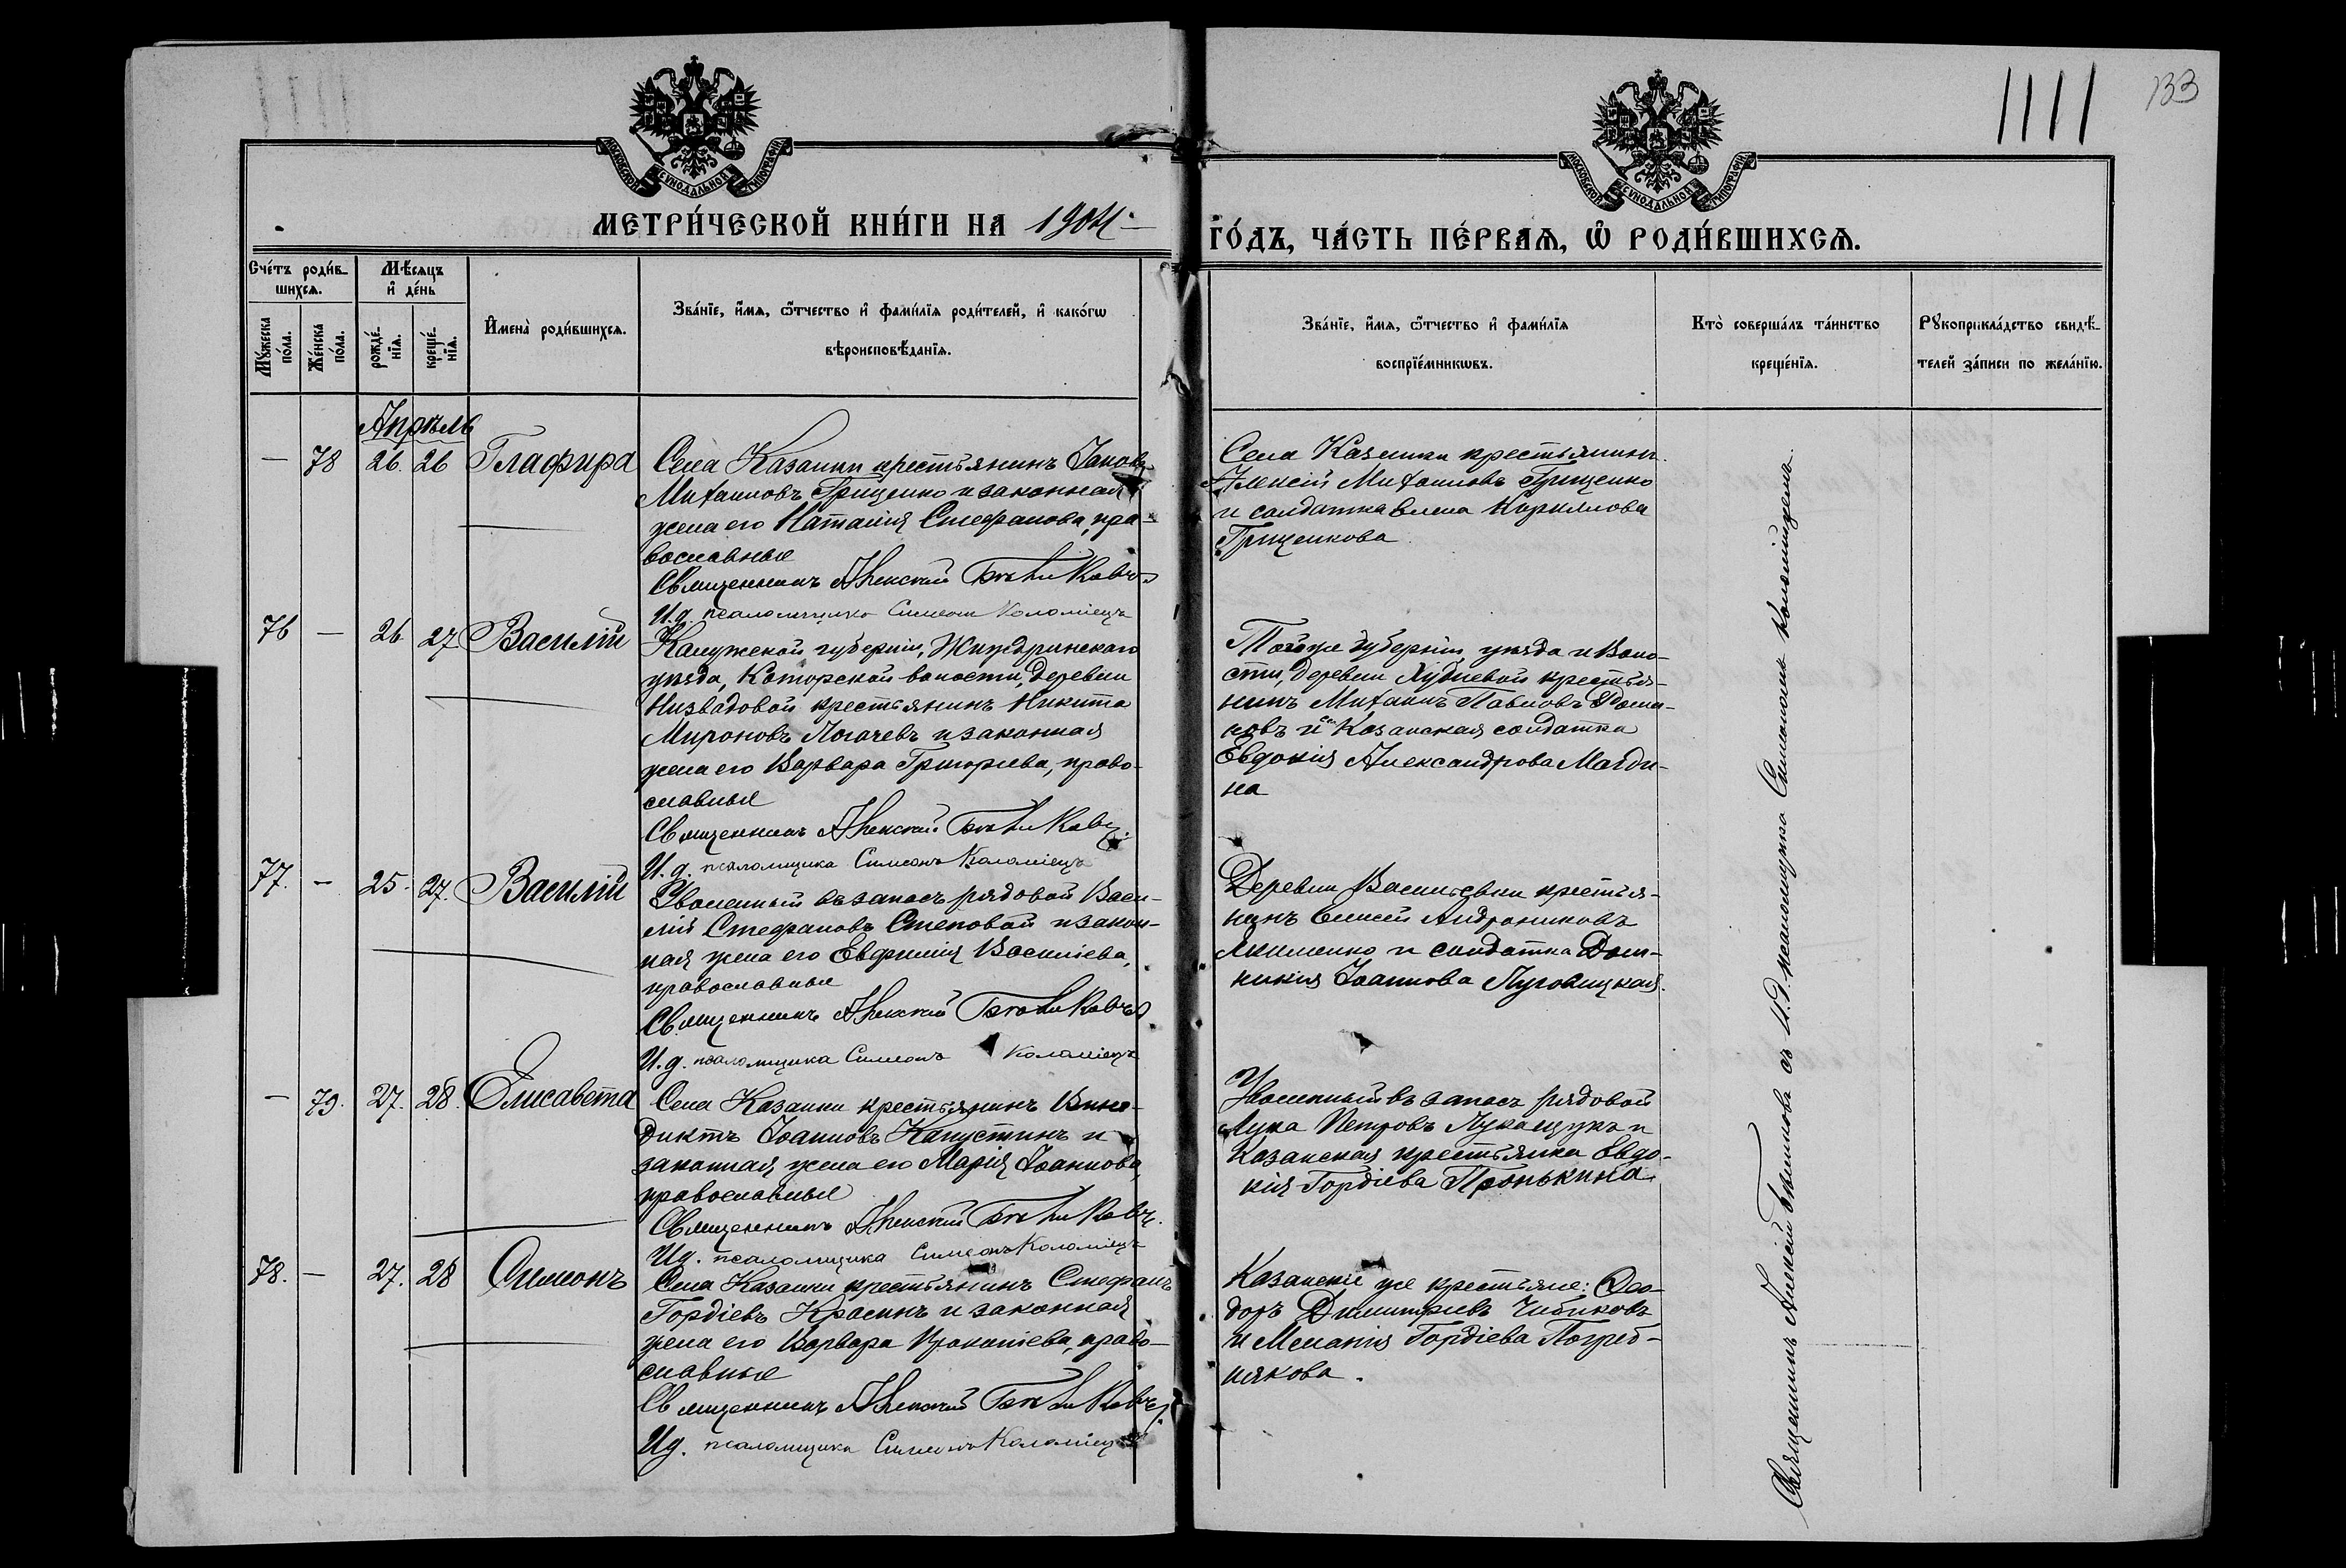 1111
133
МОСКОВСКОЙ СУНОДАЛЬНОЙ ТИПОГРАФІИ
МОСКОВСКОЙ СУНОДАЛЬНОЙ ТИПОГРАФІИ
МЕТРИ́ЧЕСКОЙ КНИ́ГИ НА 1904
ГО́ДЪ, ЧА́СТЬ ПЕ́РВАѦ, Ѡ҆ РОДИ́ВШИХСѦ.
Сче́тъ роди́в-
шихсѧ.
Мѣ́сѧцъ
и҆ де́нь
Мꙋ́жеска
по́ла.
Же́нска
по́ла.
рожде́-
нїѧ.
креще́-
нїѧ.
И҆мена̀ роди́вшихсѧ.
Зва́нїе, и҆́мѧ, ѻ҆́тчество и҆ фами́лїѧ роди́телей, и҆ како́гѡ
вѣроисповѣ́данїѧ.
Зва́нїе, и҆́мѧ, ѻ҆́тчество и҆ фами́лїѧ
воспрїе́мникѡвъ.
Кто̀ соверша́лъ та́инство
креще́нїѧ.
Рꙋкоприкла́дство свидѣ́-
телей за́писи по жела́нїю.
Апрѣль
— 78 26. 26 Глафира
Села Казанки крестьянинъ Іаковъ
Михаиловъ Грищенко и законная
жена его Наталія Стефанова, пра-
вославные
Священникъ Алексій
И. д. псаломщика Симеонъ Коломіецъ
Села Казанки крестьянинъ
Алексій Михаиловъ Грищенко
и солдатка Елена Кириллова
Грищенкова
76 — 26 27 Василій
Калужской губерніи, Жиздринскаго
уѣзда, Которской волости, деревни
Низвадовой крестьянинъ Никита
Мироновъ Логачевъ и законная
жена его Варвара Григорьева, право-
славные
Священникъ Алексій
И. д. псаломщика Симеонъ Коломіецъ
Той же губерніи уѣзда и воло-
сти, деревни крестья-
нинъ Михаилъ Павловъ Рома-
новъ и Казанская солдатка
Евдокія Александрова
на
77. — 25. 27. Василій
Уволенный въ запасъ рядовой Васи-
лій Стефановъ Степовой и закон-
ная жена его Евфимія Василіева,
православные
Священникъ Алексій
И. д. псаломщика Симеонъ Коломіецъ
Деревни Васильевки крестья-
нинъ Елисей Андрониковъ
Якименко и солдатка Дом-
никія Іоаннова Пуговицкая.
— 79. 27. 28. Елисавета
Села Казанки крестьянинъ Вине-
диктъ Іоанновъ Капустинъ и
законная жена его Марія Іоаннова,
православные
Священникъ Алексій
И. д. псаломщика Симеонъ Коломіецъ
Уволенный въ запасъ рядовой
Лука Петровъ Лукащукъ и
Казанская крестьянка Евдо-
кія Гордіева Пронькина.
78. — 27. 28 Симеонъ
Села Казанки крестьянинъ Стефанъ
Гордіевъ Красинъ и законная
жена его Варвара Прокопіева, право-
славные
Священникъ Алексій
И. д. псаломщика Симеонъ Коломіецъ
Казанскіе же крестьяне: Ѳео-
доръ Димитріевъ Чибиковъ
и Меланія Гордіева Погреб-
някова.
Священникъ Алексій съ И. д. псаломщика Симеономъ Коломійцемъ.